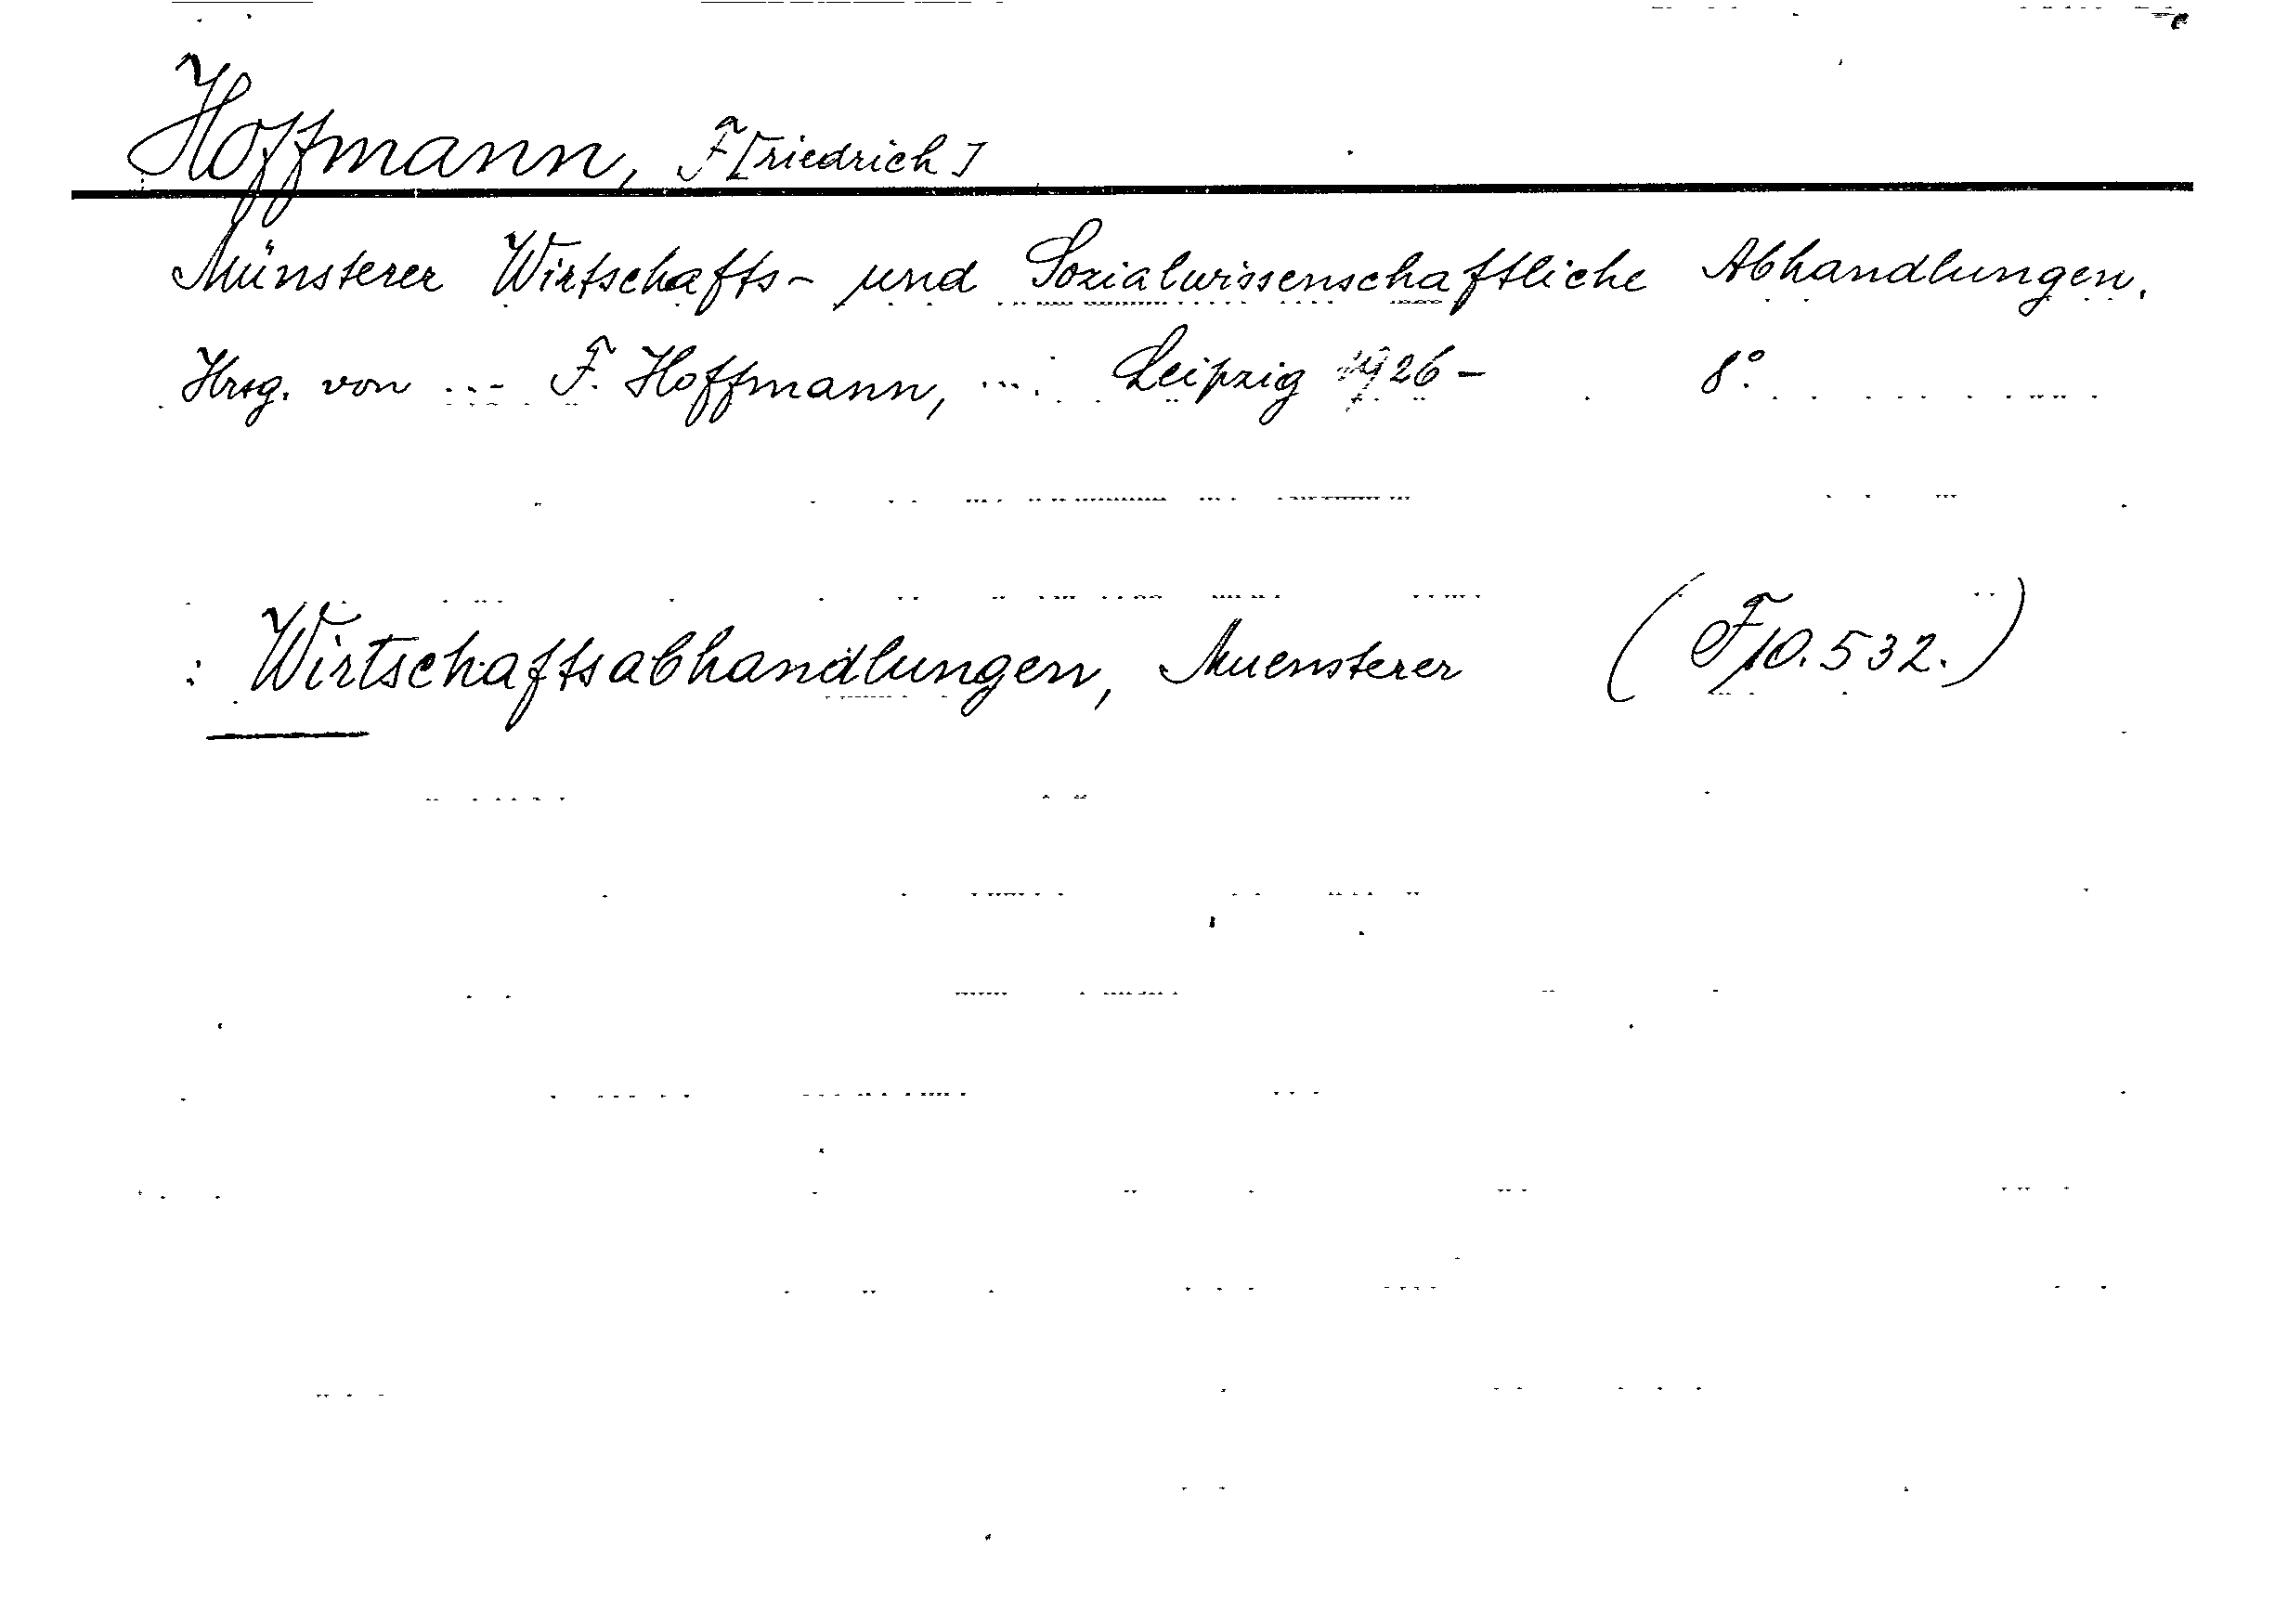 Hoffmann, F[riedrich]
Münsterer Wirtschafts- und Sozialwissenschaftliche Abhandlungen.
Hrsg. von ... F. Hoffmann, ... Leipzig 1926- 8°.
: Wirtschaftsabhandlungen, Muensterer (F10.532.)